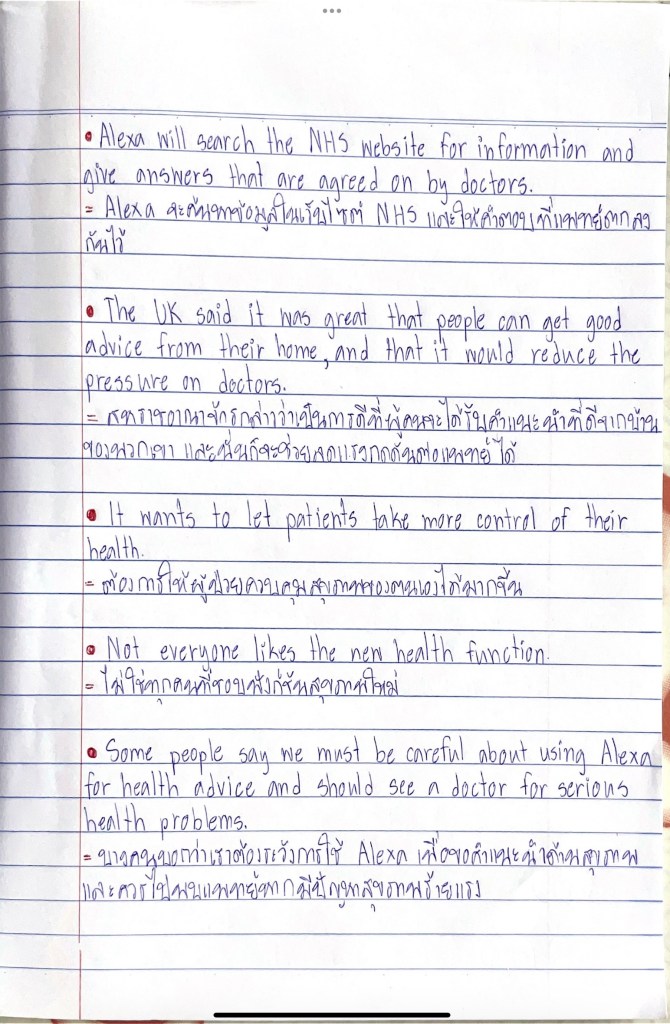 • Alexa will search the NHS website for information and
give answers that are agreed on by doctors.
= Alexa จะค้นหาข้อมูลในเว็บไซต์ NHS และให้คำตอบที่แพทย์ตกลง
กันไว้
• The UK said it was great that people can get good
advice from their home, and that it would reduce the
pressure on doctors.
= สหราชอาณาจักรกล่าวว่าเป็นการดีที่ผู้คนจะได้รับคำแนะนำที่ดีจากบ้าน
ของพวกเขา และนั่นก็จะช่วยลดแรงกดดันต่อแพทย์ได้
• It wants to let patients take more control of their
health.
= ต้องการให้ผู้ป่วยควบคุมสุขภาพของตนเองได้มากขึ้น
• Not everyone likes the new health function.
= ไม่ใช่ทุกคนที่ชอบฟังก์ชันสุขภาพใหม่
• Some people say we must be careful about using Alexa
for health advice and should see a doctor for serious
health problems.
= บางคนบอกว่าเราต้องระวังการใช้ Alexa เพื่อขอคำแนะนำด้านสุขภาพ
และควรไปพบแพทย์หากมีปัญหาสุขภาพร้ายแรง